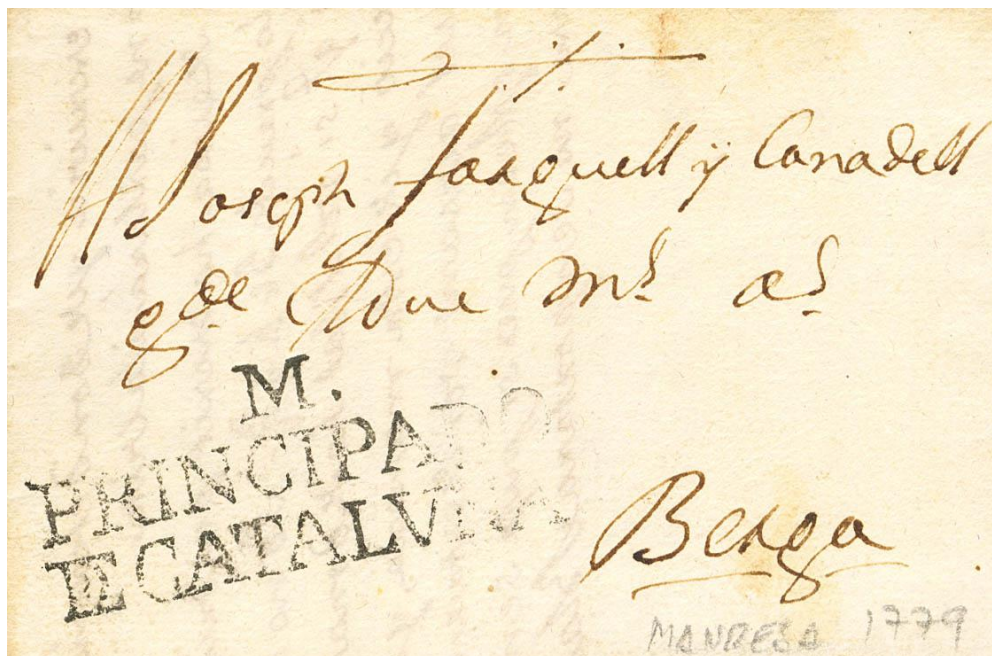 A Joseph Farguell y Canadell
gde Dius ms as
M.
PRINCIPADO
DE CATALVÑA
Berga
MANRESA 1779